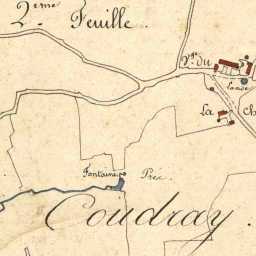 2.eme Feuille
V.ge du
La Ch
Fontaine Prée
Coudray.